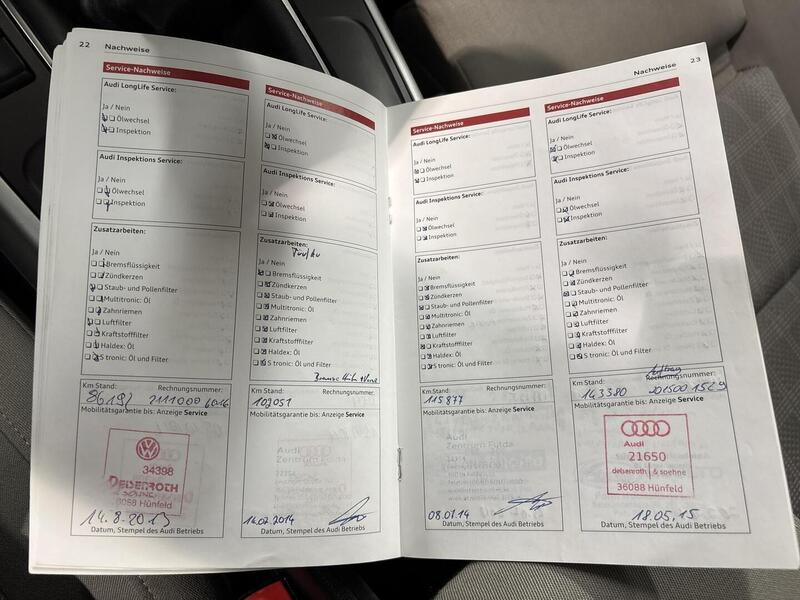 22 Nachweise
Service-Nachweise
Audi LongLife Service:
Ja / Nein
Ölwechsel
Inspektion
Audi Inspektions Service:
Ja / Nein
Ölwechsel
Inspektion
Zusatzarbeiten:
Ja / Nein
Bremsflüssigkeit
Zündkerzen
Staub- und Pollenfilter
Multitronic: Öl
Zahnriemen
Luftfilter
Kraftstofffilter
Haldex: Öl
S tronic: Öl und Filter
Km Stand: Rechnungsnummer:
Mobilitätsgarantie bis: Anzeige Service
34398
DELSENROTH
& SÖHNE
36088 Hünfeld
14.8.2013
Datum, Stempel des Audi Betriebs
Service-Nachweise
Audi LongLife Service:
Ja / Nein
Ölwechsel
Inspektion
Audi Inspektions Service:
Ja / Nein
Ölwechsel
Inspektion
Zusatzarbeiten:
Ja / Nein
Bremsflüssigkeit
Zündkerzen
Staub- und Pollenfilter
Multitronic: Öl
Zahnriemen
Luftfilter
Kraftstofffilter
Haldex: Öl
S tronic: Öl und Filter
Km Stand: Rechnungsnummer:
102051
Mobilitätsgarantie bis: Anzeige Service
Audi
Zentrum Fulda
14.02.2014
Datum, Stempel des Audi Betriebs
Nachweise 23
Service-Nachweise
Audi LongLife Service:
Ja / Nein
Ölwechsel
Inspektion
Audi Inspektions Service:
Ja / Nein
Ölwechsel
Inspektion
Zusatzarbeiten:
Ja / Nein
Bremsflüssigkeit
Zündkerzen
Staub- und Pollenfilter
Multitronic: Öl
Zahnriemen
Luftfilter
Kraftstofffilter
Haldex: Öl
S tronic: Öl und Filter
Km Stand: Rechnungsnummer:
115877
Mobilitätsgarantie bis: Anzeige Service
Audi
Zentrum Fulda
Datum, Stempel des Audi Betriebs
Service-Nachweise
Audi LongLife Service:
Ja / Nein
Ölwechsel
Inspektion
Audi Inspektions Service:
Ja / Nein
Ölwechsel
Inspektion
Zusatzarbeiten:
Ja / Nein
Bremsflüssigkeit
Zündkerzen
Staub- und Pollenfilter
Multitronic: Öl
Zahnriemen
Luftfilter
Kraftstofffilter
Haldex: Öl
S tronic: Öl und Filter
Auftrag
Km Stand: Rechnungsnummer:
143380 201500 1529
Mobilitätsgarantie bis: Anzeige Service
Audi
21650
delsenroth & soehne
36088 Hünfeld
18.05.15
Datum, Stempel des Audi Betriebs